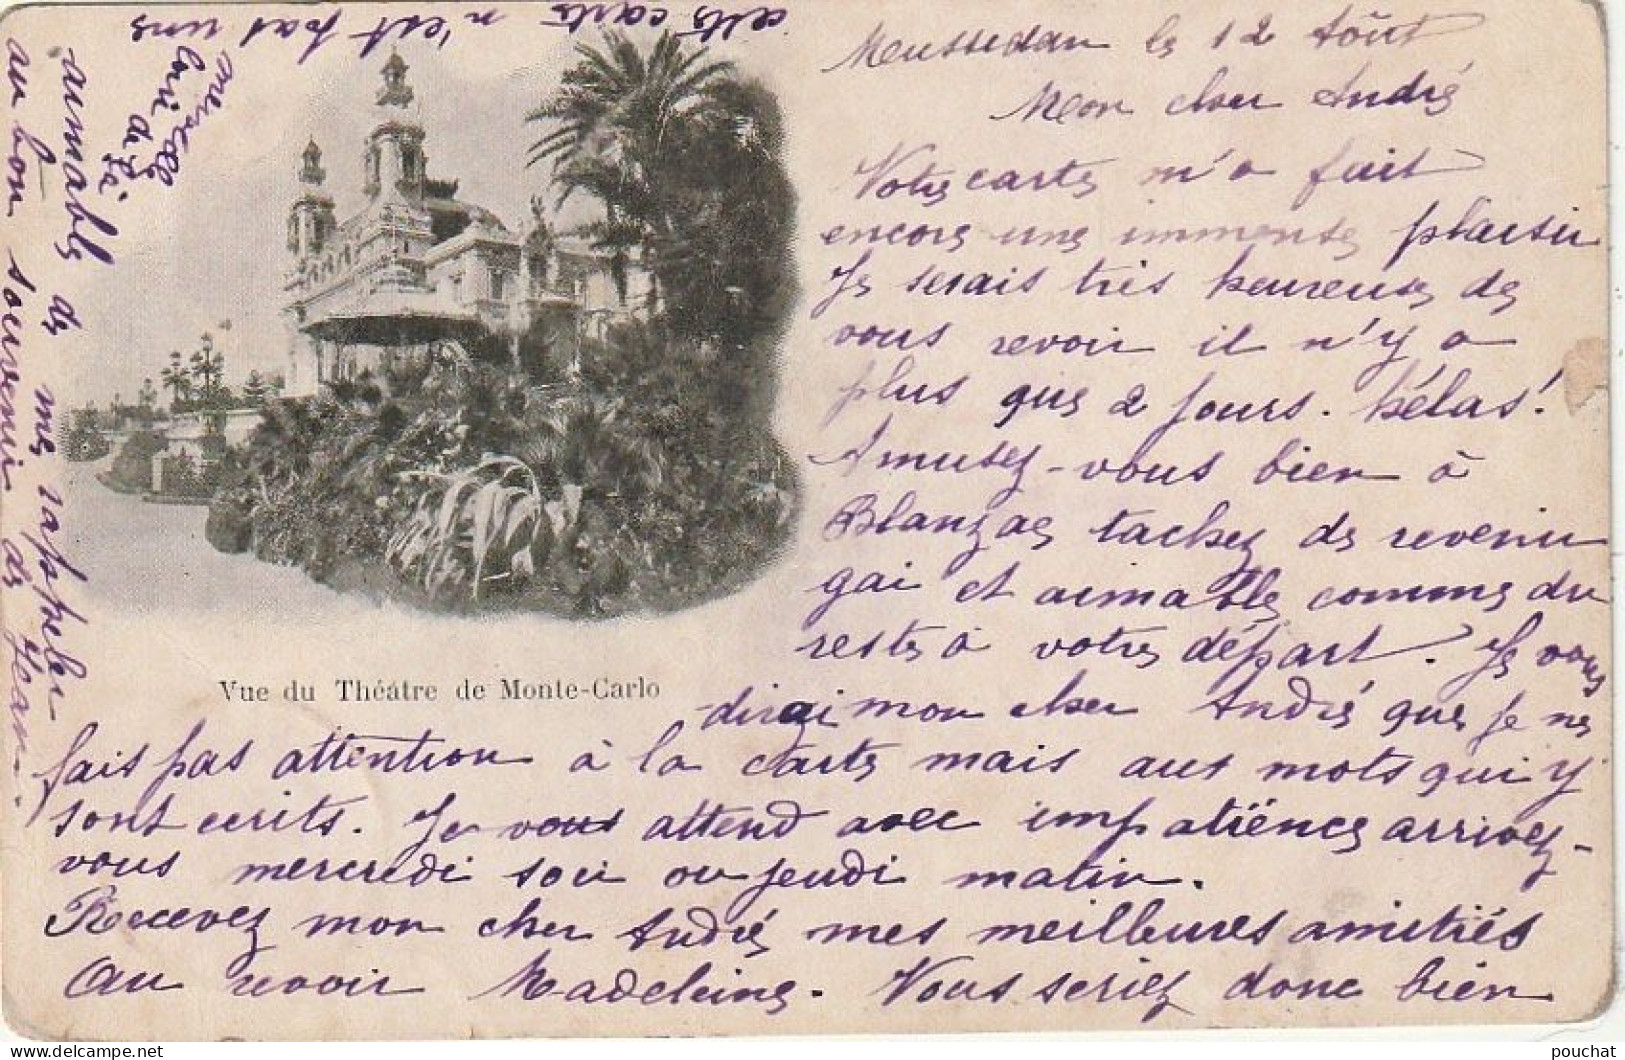 Mussidan le 12 Aôut
Mon cher André
Votre carte m'a fait
encore une immense plaisir
Je serais très heureuse de
vous revoir il n'y a
plus que 2 jours. hélas!
Amusez-vous bien à
Blanzac tachez de revenir
gai et aimable comme du
reste à votre départ. Je vous
dirai mon cher André que je ne
fais pas attention à la carte mais aux mots qui y
sont ecrits. Je vous attend avec impatiënce arrivez-
vous mercredi soir ou jeudi matin.
Recevez mon cher André mes meilleures amitiés
Au revoir Madeleine. Vous seriez donc bien
aimable de me rappeler
au bon souvenir de Jean.
cette carte n'est pas une
merveille
loin de
là
Vue du Théâtre de Monte-Carlo
pouchat